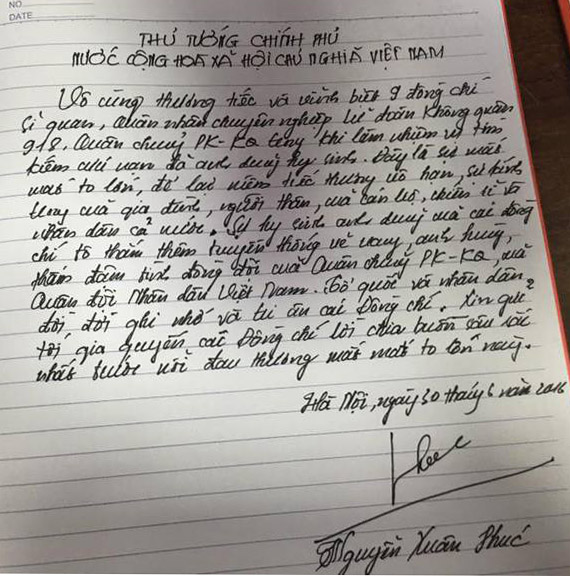 NO.
DATE
THỦ TƯỚNG CHÍNH PHỦ
NƯỚC CỘNG HOÀ XÃ HỘI CHỦ NGHĨA VIỆT NAM
Vô cùng thương tiếc và vĩnh biệt 9 đồng chí
sĩ quan, quân nhân chuyên nghiệp Lữ đoàn Không quân
918, Quân chủng PK-KQ trong khi làm nhiệm vụ tìm
kiếm cứu nạn đã anh dũng hy sinh. Đây là sự mất
mát to lớn, để lại niềm tiếc thương vô hạn, sự kính
trọng của gia đình, người thân, của cán bộ, chiến sĩ và
nhân dân cả nước. Sự hy sinh anh dũng của các đồng
chí tô thắm thêm truyền thống vẻ vang, anh hùng,
thắm đậm tình đồng đội của Quân chủng PK-KQ, của
Quân đội Nhân dân Việt Nam. Tổ quốc và nhân dân
đời đời ghi nhớ và tri ân các Đồng chí. Xin gửi
tới gia quyến các Đồng chí lời chia buồn sâu sắc
nhất trước nỗi đau thương mất mát to lớn này.
Hà Nội, ngày 30 tháng 6 năm 2016
Phuc
Nguyễn Xuân Phúc